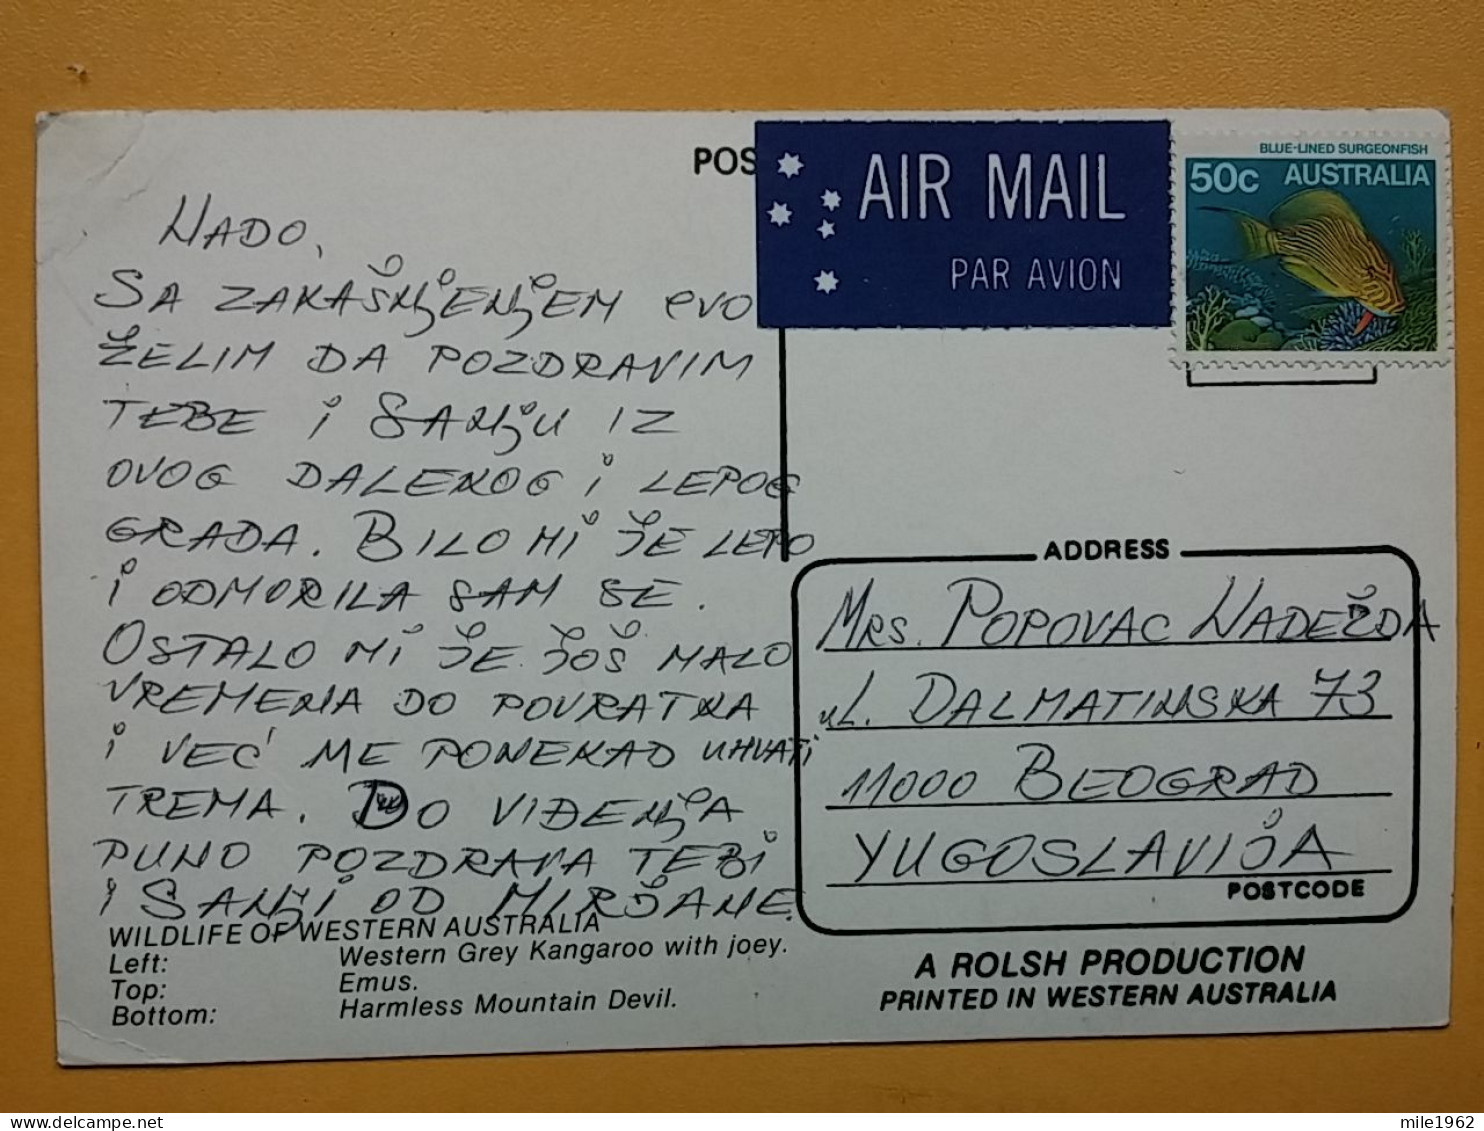 POS
AIR MAIL
PAR AVION
BLUE-LINED SURGEONFISH
50c AUSTRALIA
NADO,
SA ZAKAŠNJENJEM EVO
ŽELIM DA POZDRAVIM
TEBE I SANJU IZ
OVOG DALEKOG I LEPOG
GRADA. BILO MI JE LEPO
I ODMORILA SAM SE.
OSTALO MI JE JOŠ MALO
VREMENA DO POVRATKA
I VEĆ ME PONEKAD UHVATI
TREMA. DO VIĐENJA
PUNO POZDRAVA TEBI
I SANJI OD MIRJANE.
WILDLIFE OF WESTERN AUSTRALIA
Left: Western Grey Kangaroo with joey.
Top: Emus.
Bottom: Harmless Mountain Devil.
ADDRESS
MRS. POPOVAC NADEŽDA
UL. DALMATINSKA 73
11000 BEOGRAD
YUGOSLAVIJA
POSTCODE
A ROLSH PRODUCTION
PRINTED IN WESTERN AUSTRALIA
mile1962